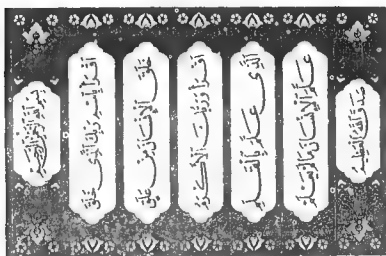 بسم الله الرحمن الرحيم
اقرأ باسم ربك الذي خلق
خلق الإنسان من علق
اقرأ وربك الأكرم
الذي علم بالقلم
علم الإنسان ما لم يعلم
صدق الله العظيم